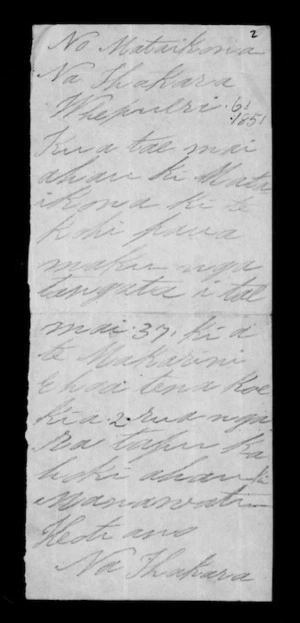 2
No Mataikona
Na Ihakara
Whepueri. 6!
1851
Kua tae mai
ahau ki Mata
ikona ki te
kohi paua
maku nga
tangata i tae
mai. 37. ki a
te Makarini
E hoa tena koe
kia 2 rua nga
ra tapu ka
hoki ahau ki
Manawatu
Heoti ano
Na Ihakara